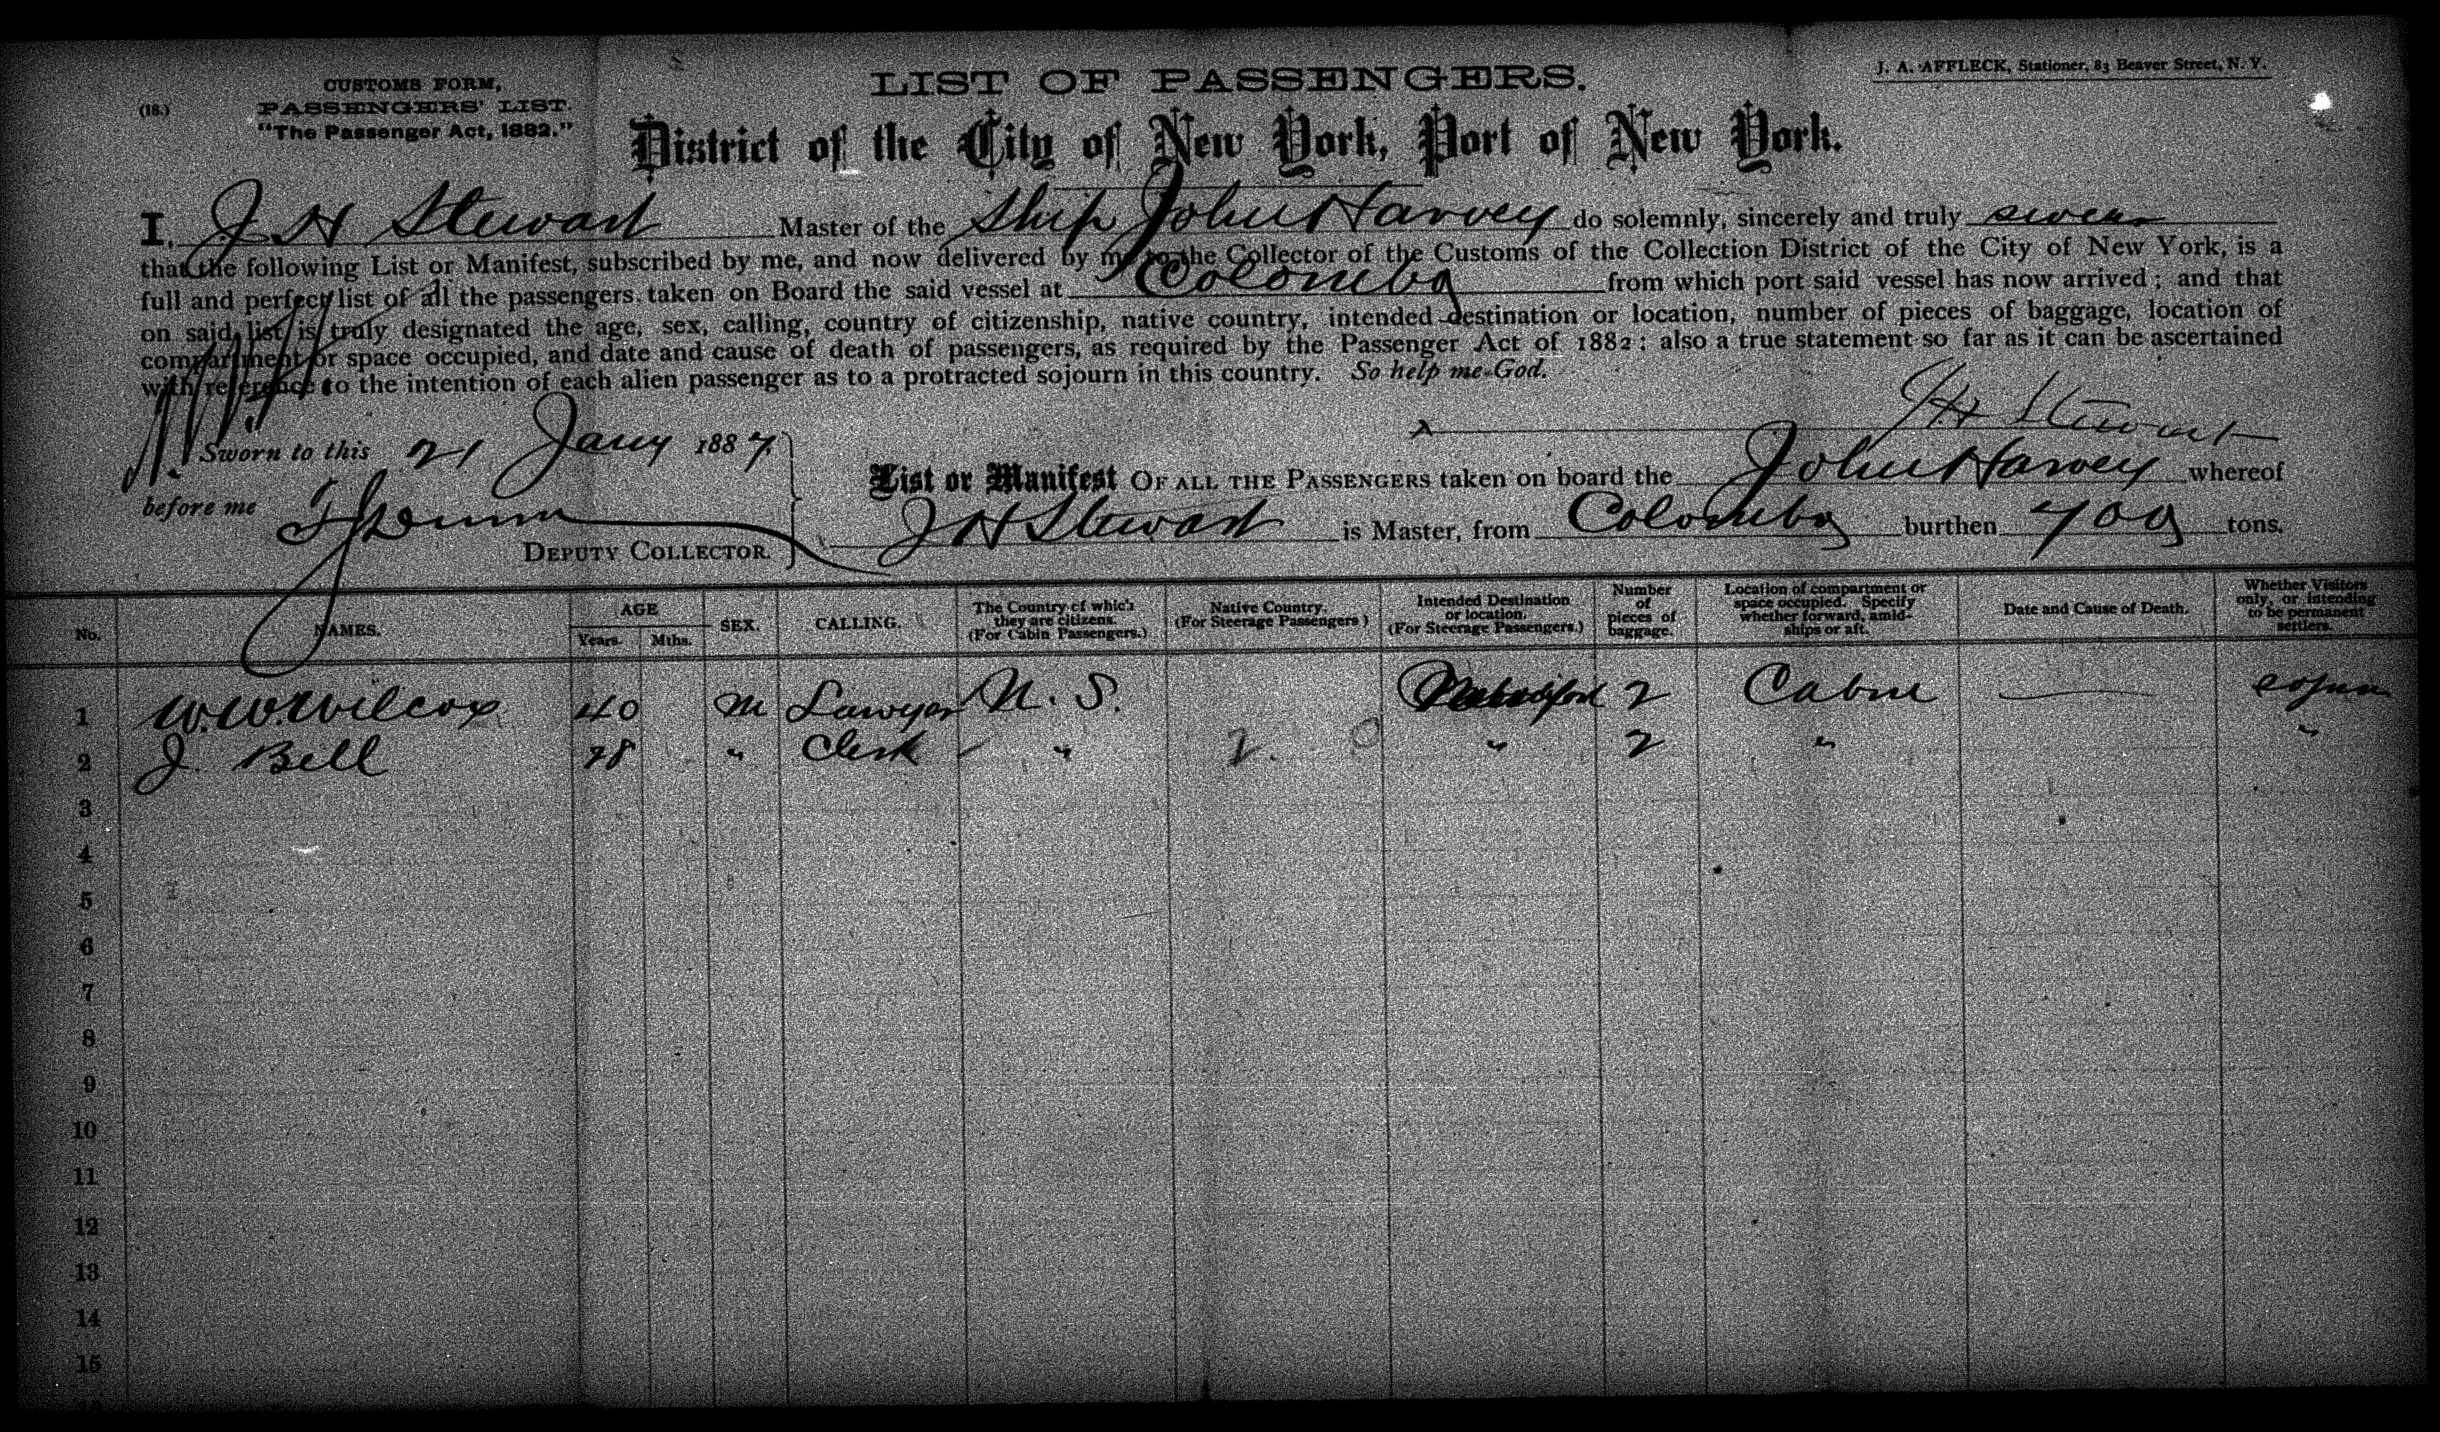 (18.)
CUSTOMS FORM,
PASSENGERS' LIST.
"The Passenger Act, 1882."
LIST OF PASSENGERS.
J. A. AFFLECK, Stationer, 83 Beaver Street, N. Y.
District of the City of New York, Port of New York.
I, J H Stewart Master of the Ship John Harvey do solemnly, sincerely and truly swear
that the following List or Manifest, subscribed by me, and now delivered by me to the Collector of the Customs of the Collection District of the City of New York, is a
full and perfect list of all the passengers taken on Board the said vessel at Colombo from which port said vessel has now arrived; and that
on said list is truly designated the age, sex, calling, country of citizenship, native country, intended destination or location, number of pieces of baggage, location of
compartment or space occupied, and date and cause of death of passengers, as required by the Passenger Act of 1882: also a true statement so far as it can be ascertained
with reference to the intention of each alien passenger as to a protracted sojourn in this country. So help me God.
J H Stewart
Sworn to this 21 Jany 1887.
before me
DEPUTY COLLECTOR.
List or Manifest OF ALL THE PASSENGERS taken on board the John Harvey whereof
J H Stewart is Master, from Colombo burthen 700 tons.
No. NAMES. AGE Years. Mths. SEX. CALLING. The Country of which they are citizens. (For Cabin Passengers.) Native Country. (For Steerage Passengers) Intended Destination or location. (For Steerage Passengers.) Number of pieces of baggage. Location of compartment or space occupied. Specify whether forward, amidships or aft. Date and Cause of Death. Whether Visitors only, or intending to be permanent settlers.
1 W. W. Wilcox 40 M Lawyer 2 Cabin
2 J. Bell 28 " Clerk " 2. " 2 " "
3
4
5
6
7
8
9
10
11
12
13
14
15